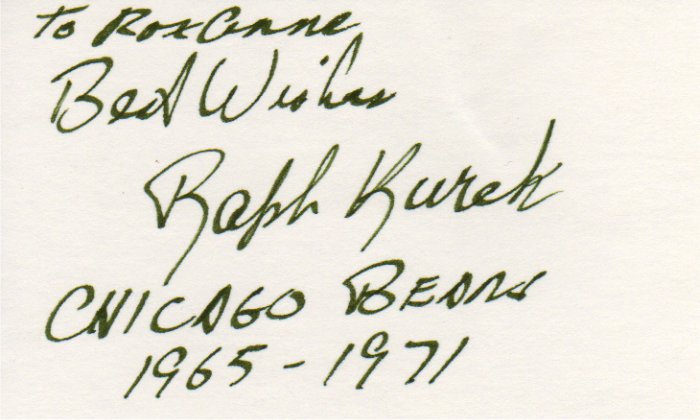 To Roxanne
Best Wishes
Ralph Kurek
CHICAGO BEARS
1965 - 1971